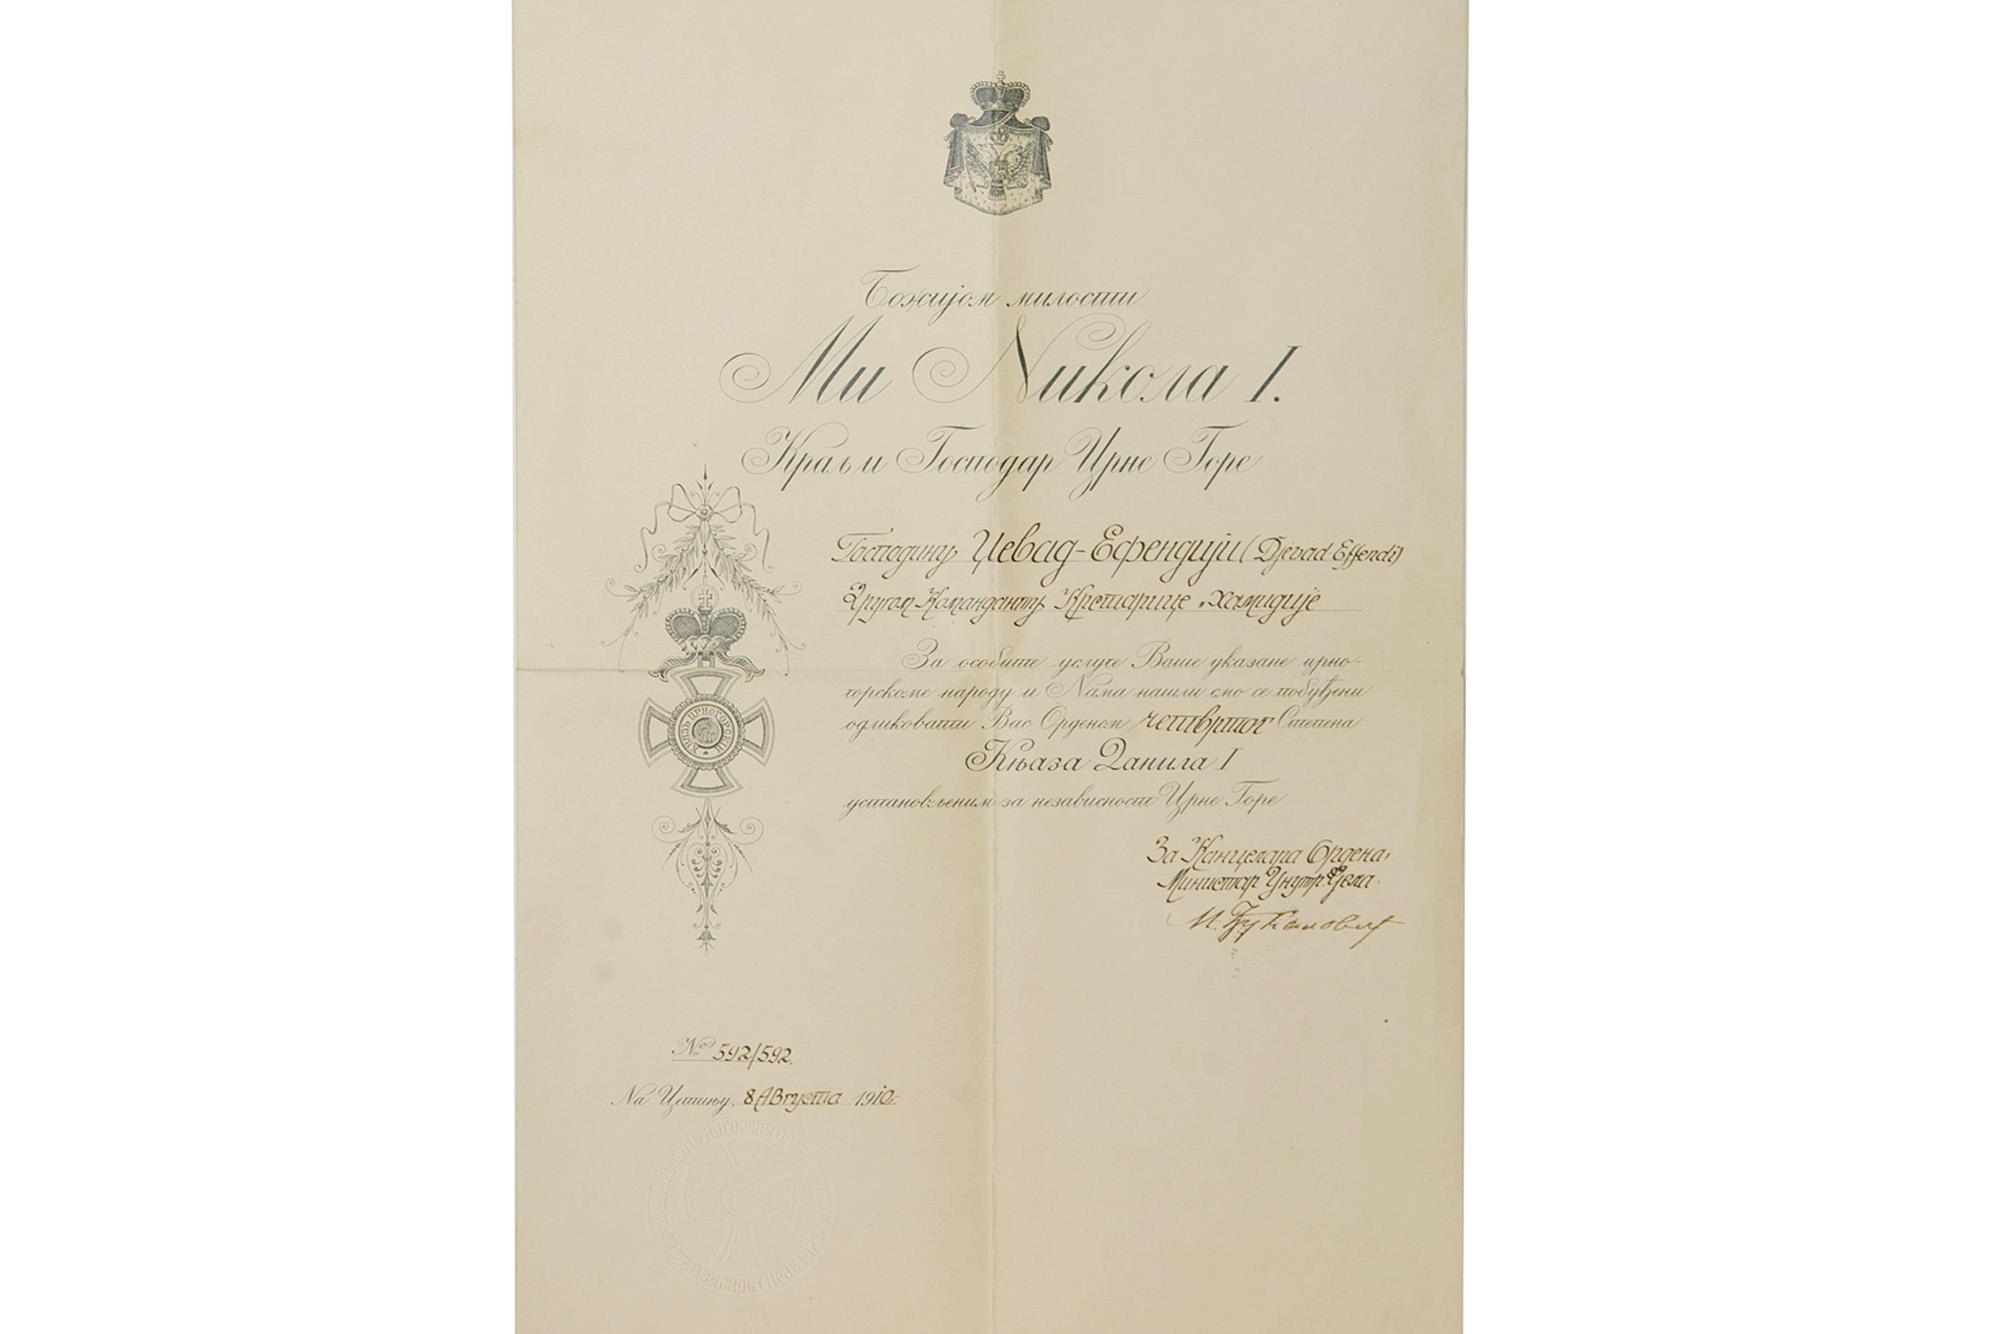 Божијом милости
Ми Никола I.
Краљ и Господар Црне Горе
Господину Џевад-Ефендији (Djevad Effendi)
Другом Команданту Крстарице „Хамидије
За особите услуге Ваше указане црно-
горскоме народу и Нама нашли смо се побуђени
одликовати Вас Орденом четвртог Степена
Књаза Данила I
установљеним за независност Црне Горе
КЊАЗЬ ЦРНОГОРСКИЙ
За Канцелара Ордена,
Министар Унутр. Дјела.
№ 592/592.
На Цетињу, 8 Августа 1910.